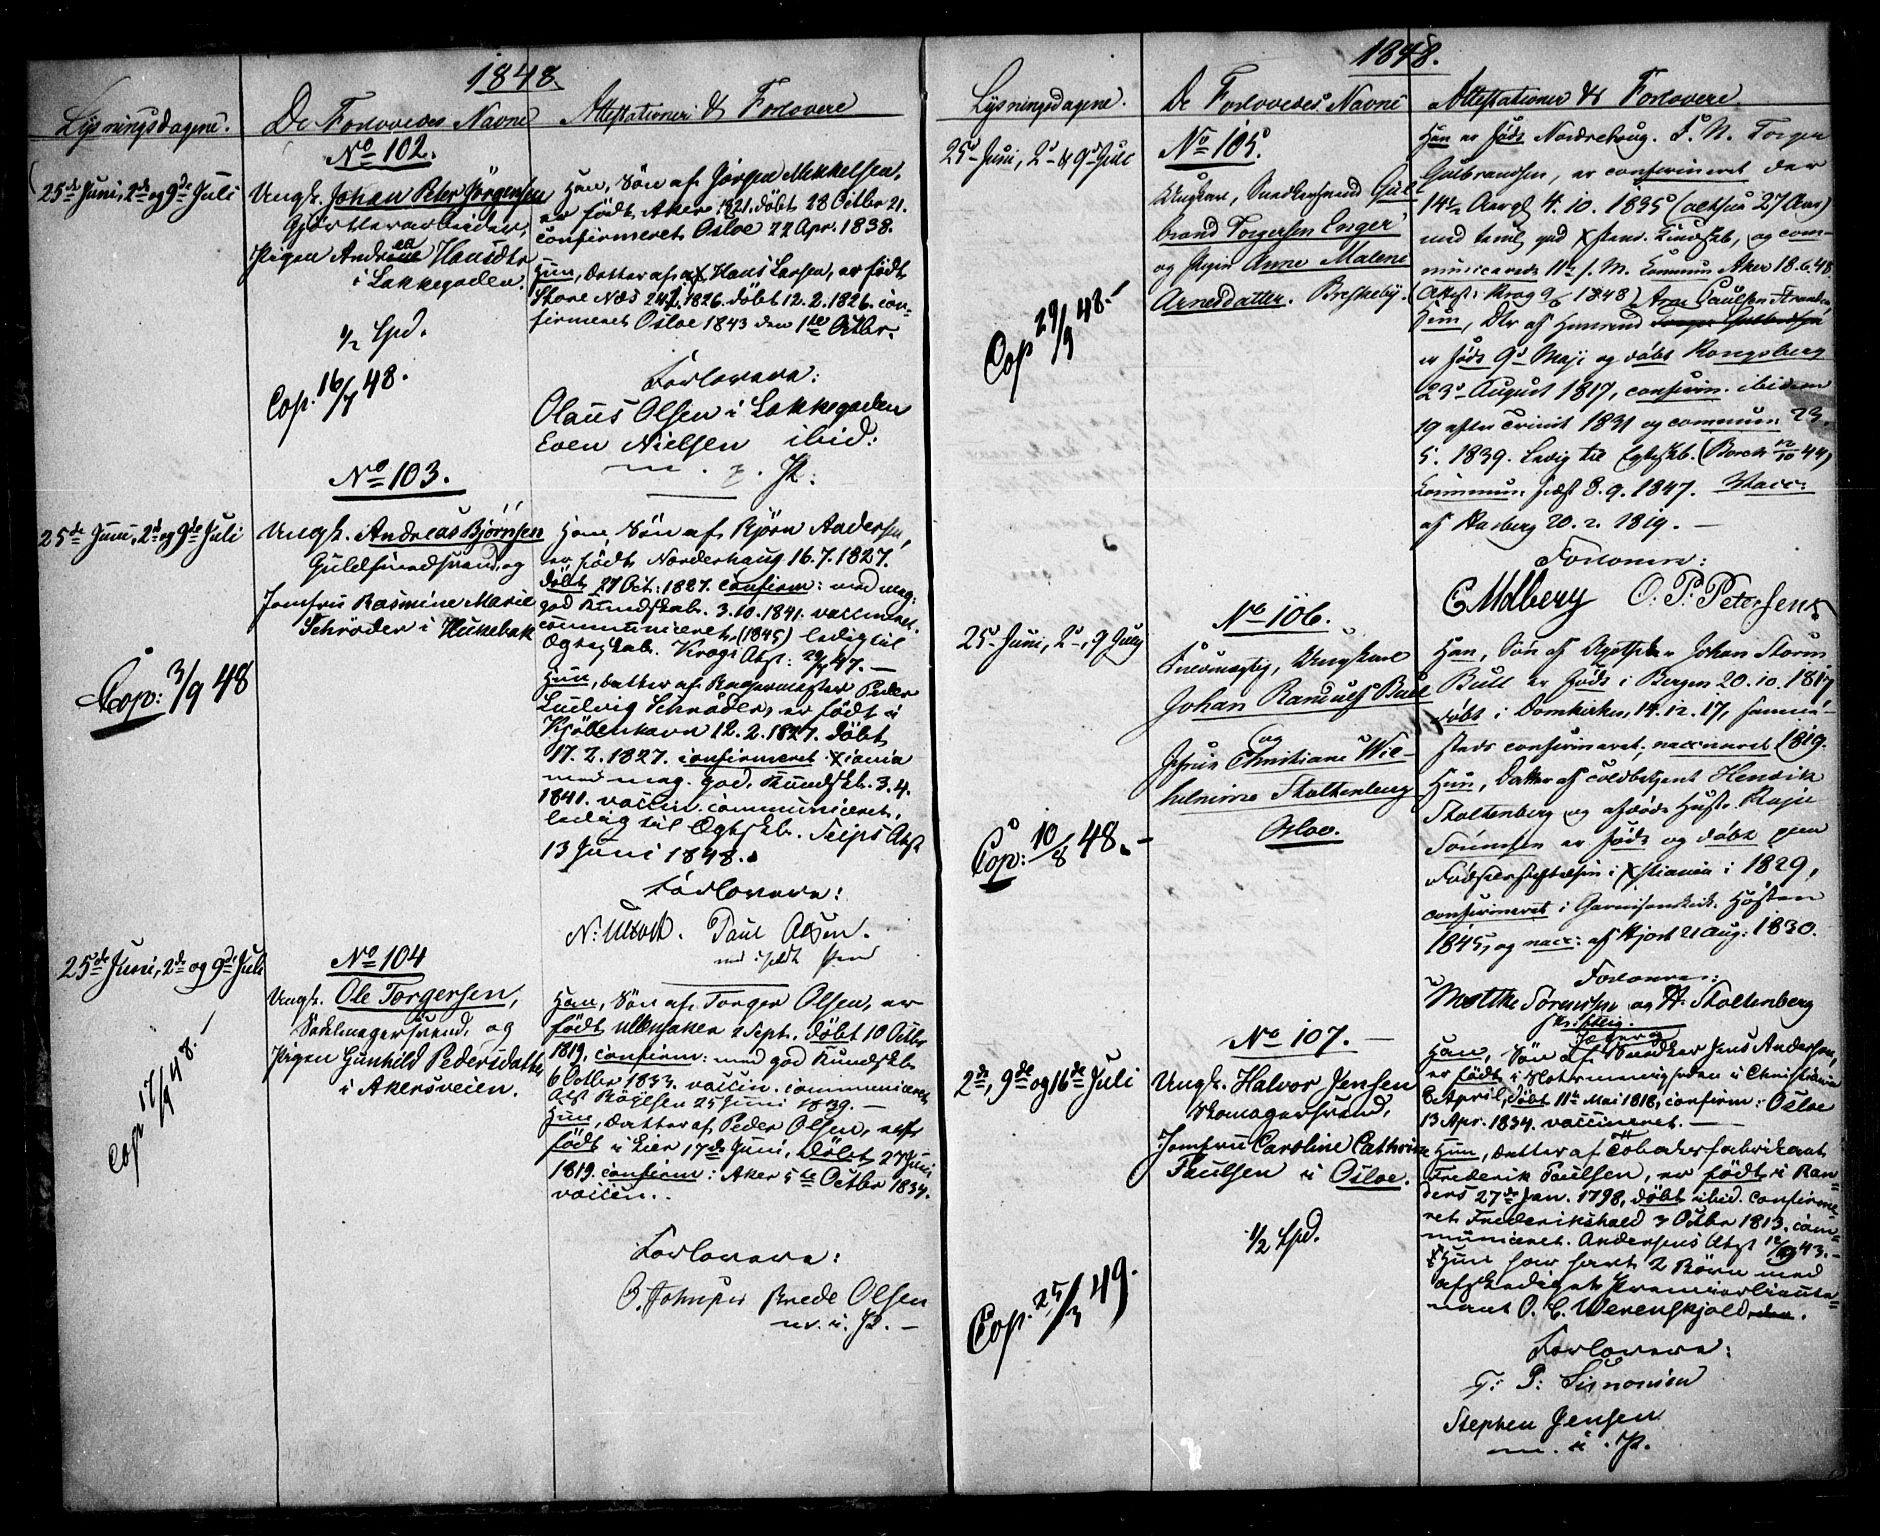 1848
Lysningsdagene.
De Forlovedes Navne
Attestationer & Forlovere
No 102.
25de Juni, 2de og 9de Juli
Ungk. Johan Peter Jörgensen
Gjörtlerarbeider,
Pigen Andrea Hansdtr
i Lakkegaden.
1/2 Spd.
Cop. 16/7 48.
Han, Sön af Jörgen Mikkelsen,
er födt Aker 1821, döbt 28 Octbr 21.
confirmeret Osloe 22 Apr. 1838.
Hun, Datter af Hans Larsen, er födt
Store Næs 1826. döbt 12.2.1826. con-
firmeret Osloe 1843 den 1ste Octbr.
Forlovere:
Olaus Olsen i Lakkegaden
Even Nielsen ibid:
m. P.
No 103.
25de Juni, 2de og 9de Juli
Ungk. Andreas Bjørnsen
Guldsmedsvend og
Jomfru Rasmine Marie
Schröder i Hukebak
Cop: 3/9 48
Han, Sön af Björn Andersen,
er födt Norderhaug 16.7.1827.
döbt 27 Oct: 1827. confirm: med meg:
god Kundskab. 3.10.1841. vaccineret.
communiceret (1845) ledig til
Ægteskab. Krogs Atst: 29/ 47. —
Hun, datter af Peder
Ludvig Schröder, er födt i
Kjöbenhavn 12.2.1827. döbt
17.2.1827. confirmeret Xiania
med meg. god. Kundskb. 3.4.
1841. vaccin. communiceret,
ledig til Ægtskb. Seips Atst
13 Juni 1848.
Forlovere:
Paul Olsen.
No 104
25de Juni, 2de og 9de Juli
Ungk. Ole Torgersen,
Sadelmagersvend, og
Pigen Gunhild Pedersdatter
i Akersveien.
Cop 17/9 48.
Han, Sön af Torger Olsen, er
födt Ullensaker 2 Sept. döbt 10 Octbr
1819, confirm: med god Kundskb
6 Octbr 1833. vaccin. communiceret
Atst 25 Juni 1839. —
Hun, datter af Peder Olsen,
födt i Lier 17de Juni, döbt 27 Juni
1819. confirm: Aker 5te Octbr 1834.
vaccin..
Forlovere:
Brede Olsen
m. i. P. —
1848.
Lysningsdagene.
De Forlovedes Navne
Attestationer & Forlovere
25d Juni, 2d & 9d Juli
No 105.
Ungkarl, Snedkersvend Gul-
brand Torgersen Enger
og Pigen Anne Malene
Arnesdatter. Briskeby.
Cop 29/9 48.
Han er föd Norderhoug. S. N. Torger
Gulbrandsen, er confirmeret der
14 1/2 Aargl 4.10.1835 (altsaa 27 Aar)
med teml. god Xstend. Kundskb, og com-
municerede 11te f. M. Aker 18.6.48
(Attest: Krog 1848) Arne Paulsen
Hun, Dtr af
er föd 9d Maji og döbt Kongsberg
23d August 1817, confirm. ibidem
19 efter Trinit 1831 og commun: 23.
5. 1839. Ledig til Egteskb. (Borch 12/10 44)
Commun. sidst 8.9.1847. Vacc:
af Hasberg 20.2.1819. —
Forlovere:
O. P. Petersen
No 106.
25d Juni, 2d, 9 July
Fuldmægtig, Ungkarl
Johan Randulf Bull
og
Jfrue Christiane Wil-
helmine Stoltenberg
Osloe.
Cop: 10/8 48.
Han, Sön af Johan Storm
Bull er föds i Bergen 20.10.1817,
döbt i Domkirken, 14.12.17, samme-
steds confirmeret; vaccineret 1819.
Hun, Datter af Henrik
Stoltenberg og afdöde Hust.
er föds og döbt
i Xstiania i 1829,
confirmeret i Garnisonskirk. Hösten
1845, og vacc: af Hjort 21 Aug: 1830.
Forlovere:
Moltke Sörensen og H. Stoltenberg
No 107.
2de, 9de og 16de Juli
Ungk. Halvor Jensen
Skomagersvend,
Jomfru Caroline Cathrine
Paulsen i Osloe.
1/2 Spd.
Cop. 25/3 49.
Han, Sön af Snedker Jens Andersen,
er födt i Christiania
April, döbt 11te Mai 1818, confirm: Osloe
13 Apr. 1834. vaccineret. —
Hun, datter af Tobaksfabrikant
Frederik Paulsen, er födt i Ran-
ders 27de Jan. 1798, döbt ibid. confirme-
ret Frederikshald 3 Octbr 1813. com-
municeret. Andersens Atst 43. —
Hun har havt 2 Börn med
afskediget Premierlieute-
nant O. C. Werenskjold.
Forlovere:
T: P: Simonsen
Stephen Jensen
m. i. P.